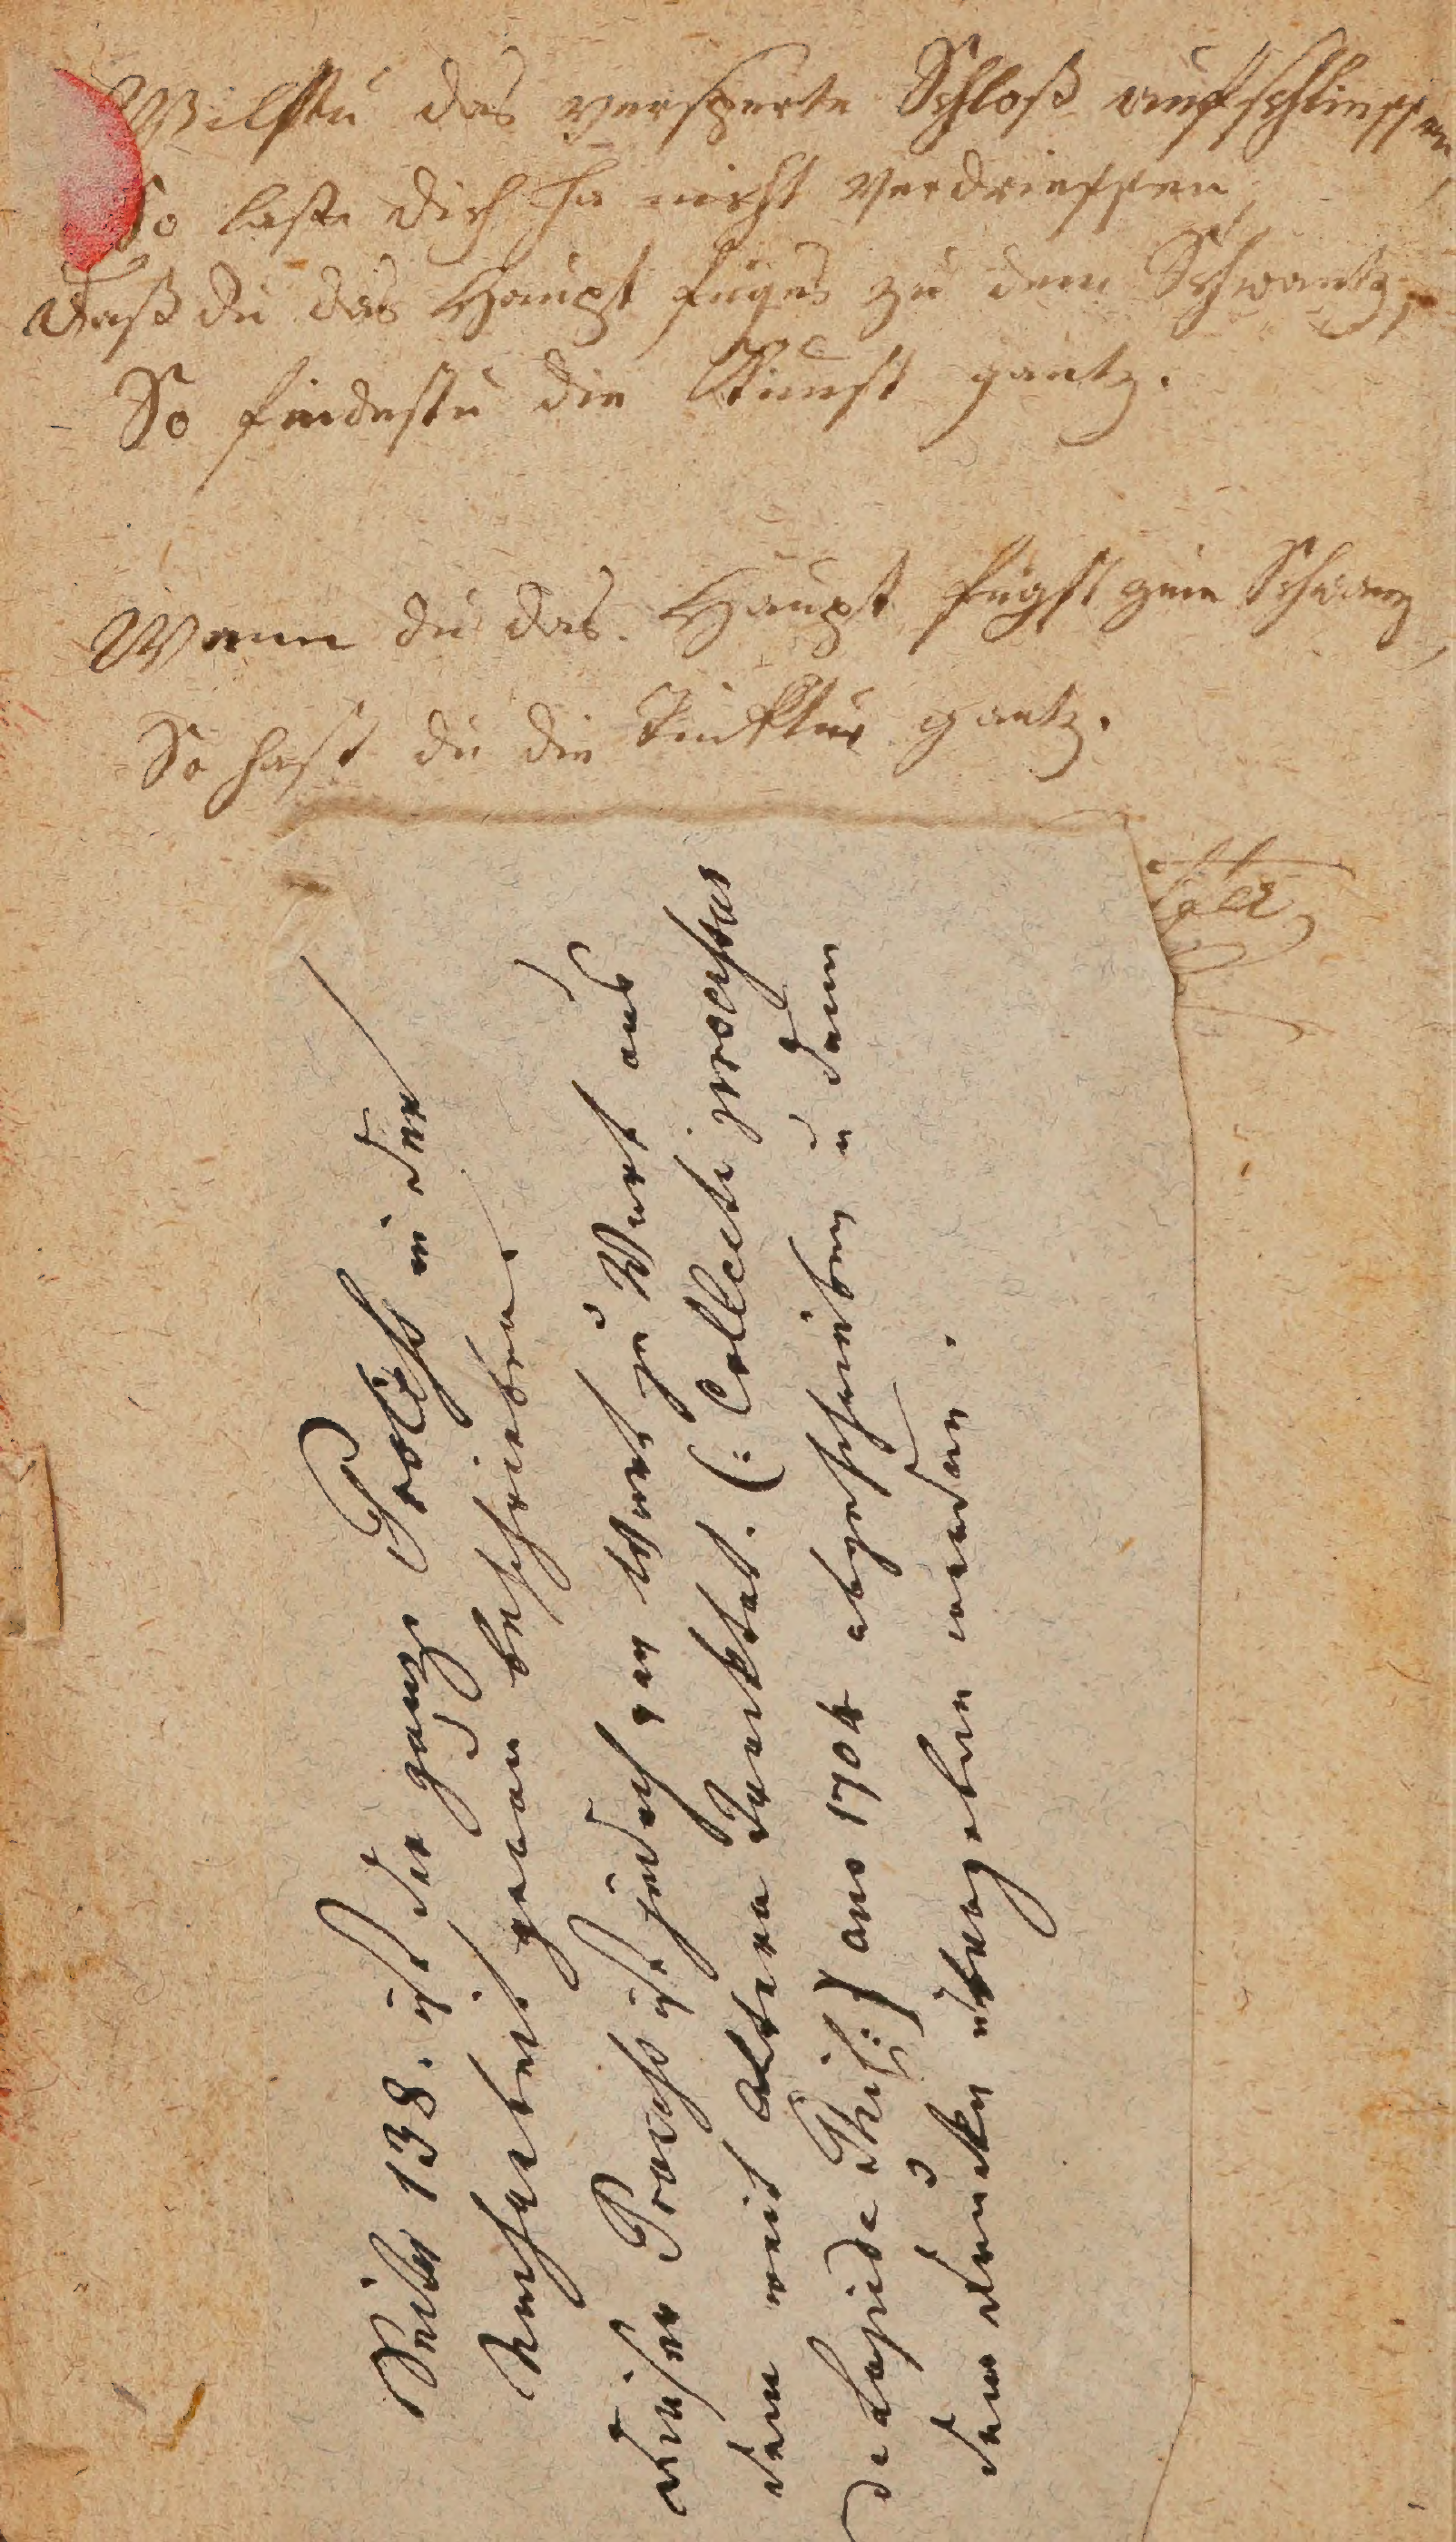 Wilstu das versperte Schloß aufschliessen,
So laße dich ja nicht verdriessen,
Daß du das Haupt fügest zu dem Schwantz,
So findestu die Kunst gantz.
Wenn du das Haupt fügst zum Schwanz,
So hast du die Tinktur gantz.
Seite 138. ist der ganze Proceß in der
Nacharbeit genau beschrieben.
dieser Proceß ist jedoch von Wort zu Wort aus
dem mit altera Traktat. (: Collecti processus
de Lapide Phil:) ano 1704 abgeschrieben u dann
dem Drucke übergeben worden.